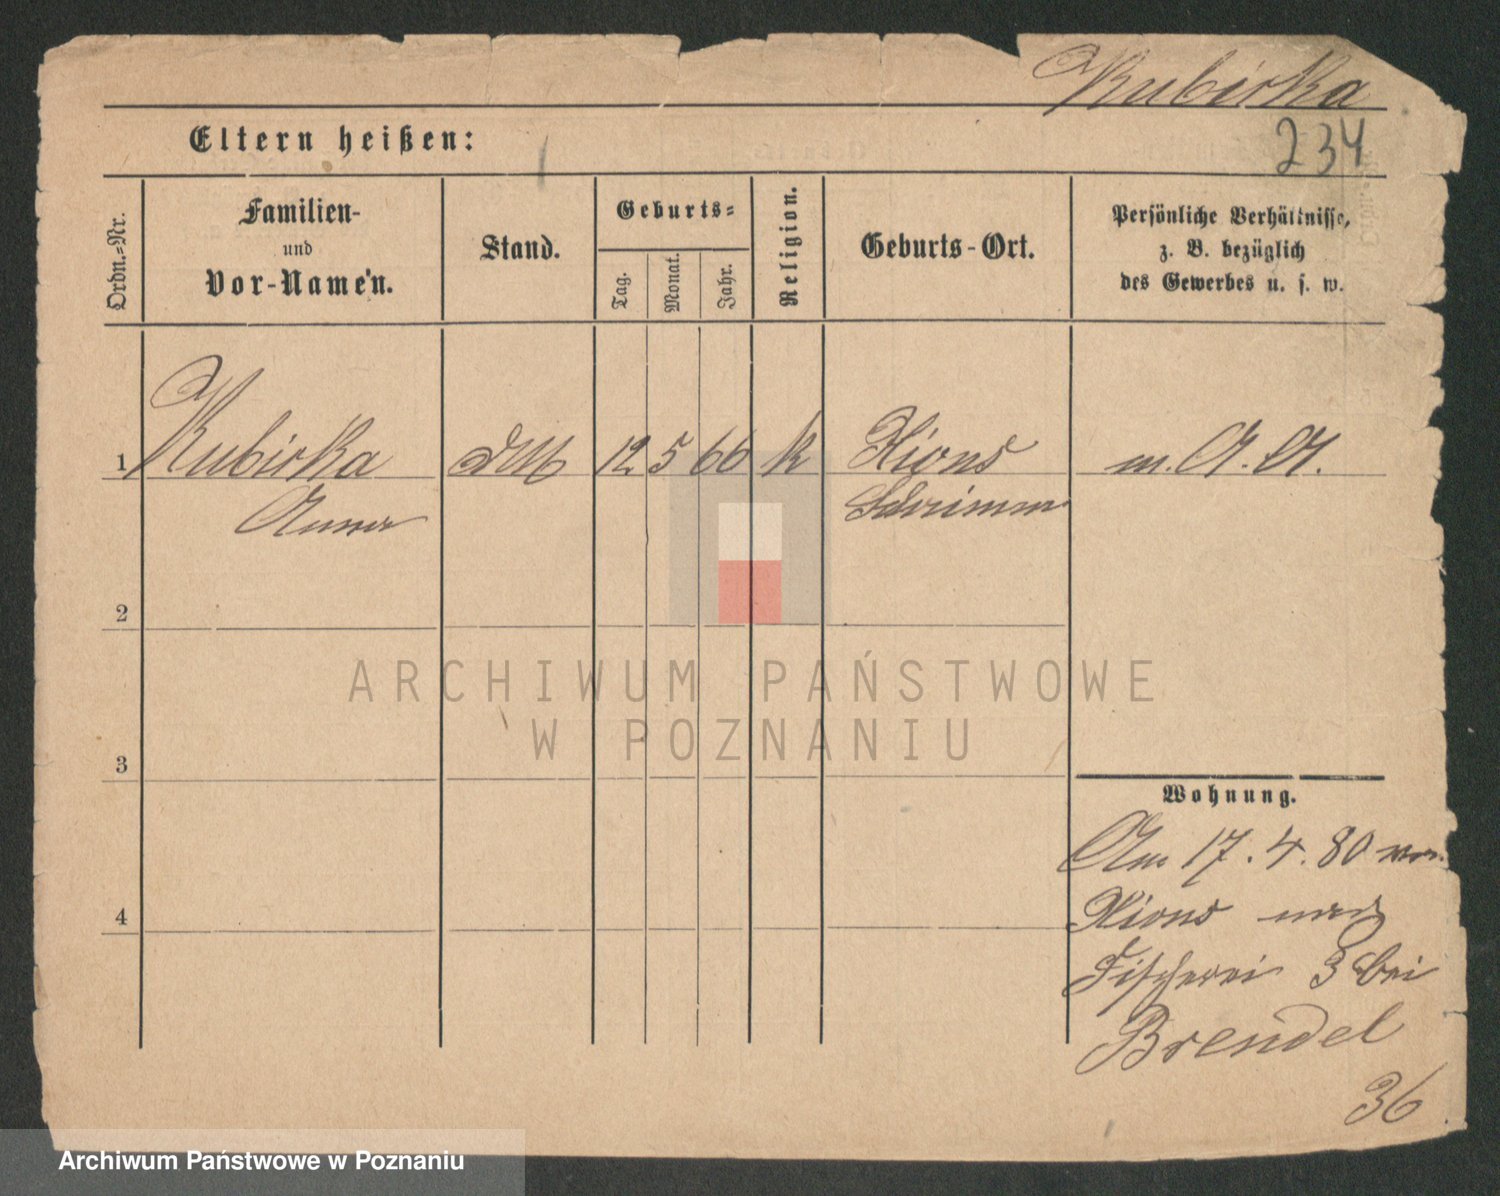 Kubirka
234
Eltern heißen:
Ordn.=Nr.
Familien-
und
Vor-Namen.
Stand.
Geburts=
Tag.
Monat.
Jahr.
Religion.
Geburts-Ort.
Persönliche Verhältnisse,
z. B. bezüglich
des Gewerbes u. s. w.
1 Kubirka 12 5 66 k Xions m. A. A.
Anna Schrimm
2
3
4
Wohnung.
Am 17. 4. 80 von
Xions nach
Fischerei 3 bei
Brendel
36
ARCHIWUM PAŃSTWOWE
W POZNANIU
Archiwum Państwowe w Poznaniu